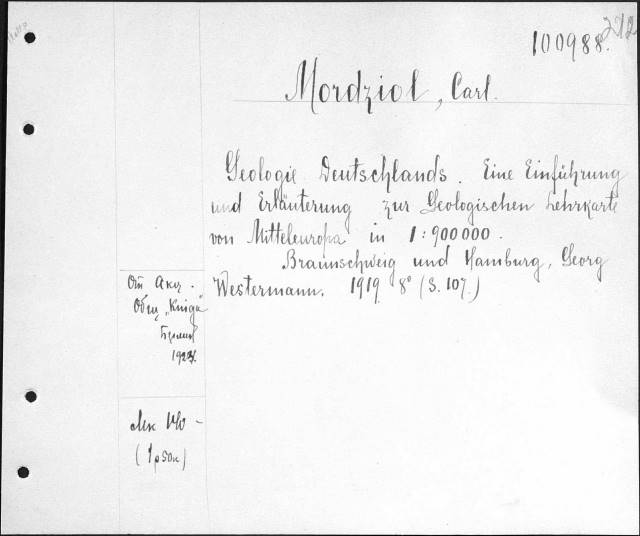 212
100988.
Mordziol, Carl.
Geologie Deutschlands. Eine Einführung
und Erläuterung zur Geologischen Lehrkarte
von Mitteleuropa in 1:900000.
Braunschweig und Hamburg, Georg
Westermann. 1919 8° (S. 107.)
От Акц.
Общ „Kniga"
Берлин
1924.
(1р50к)